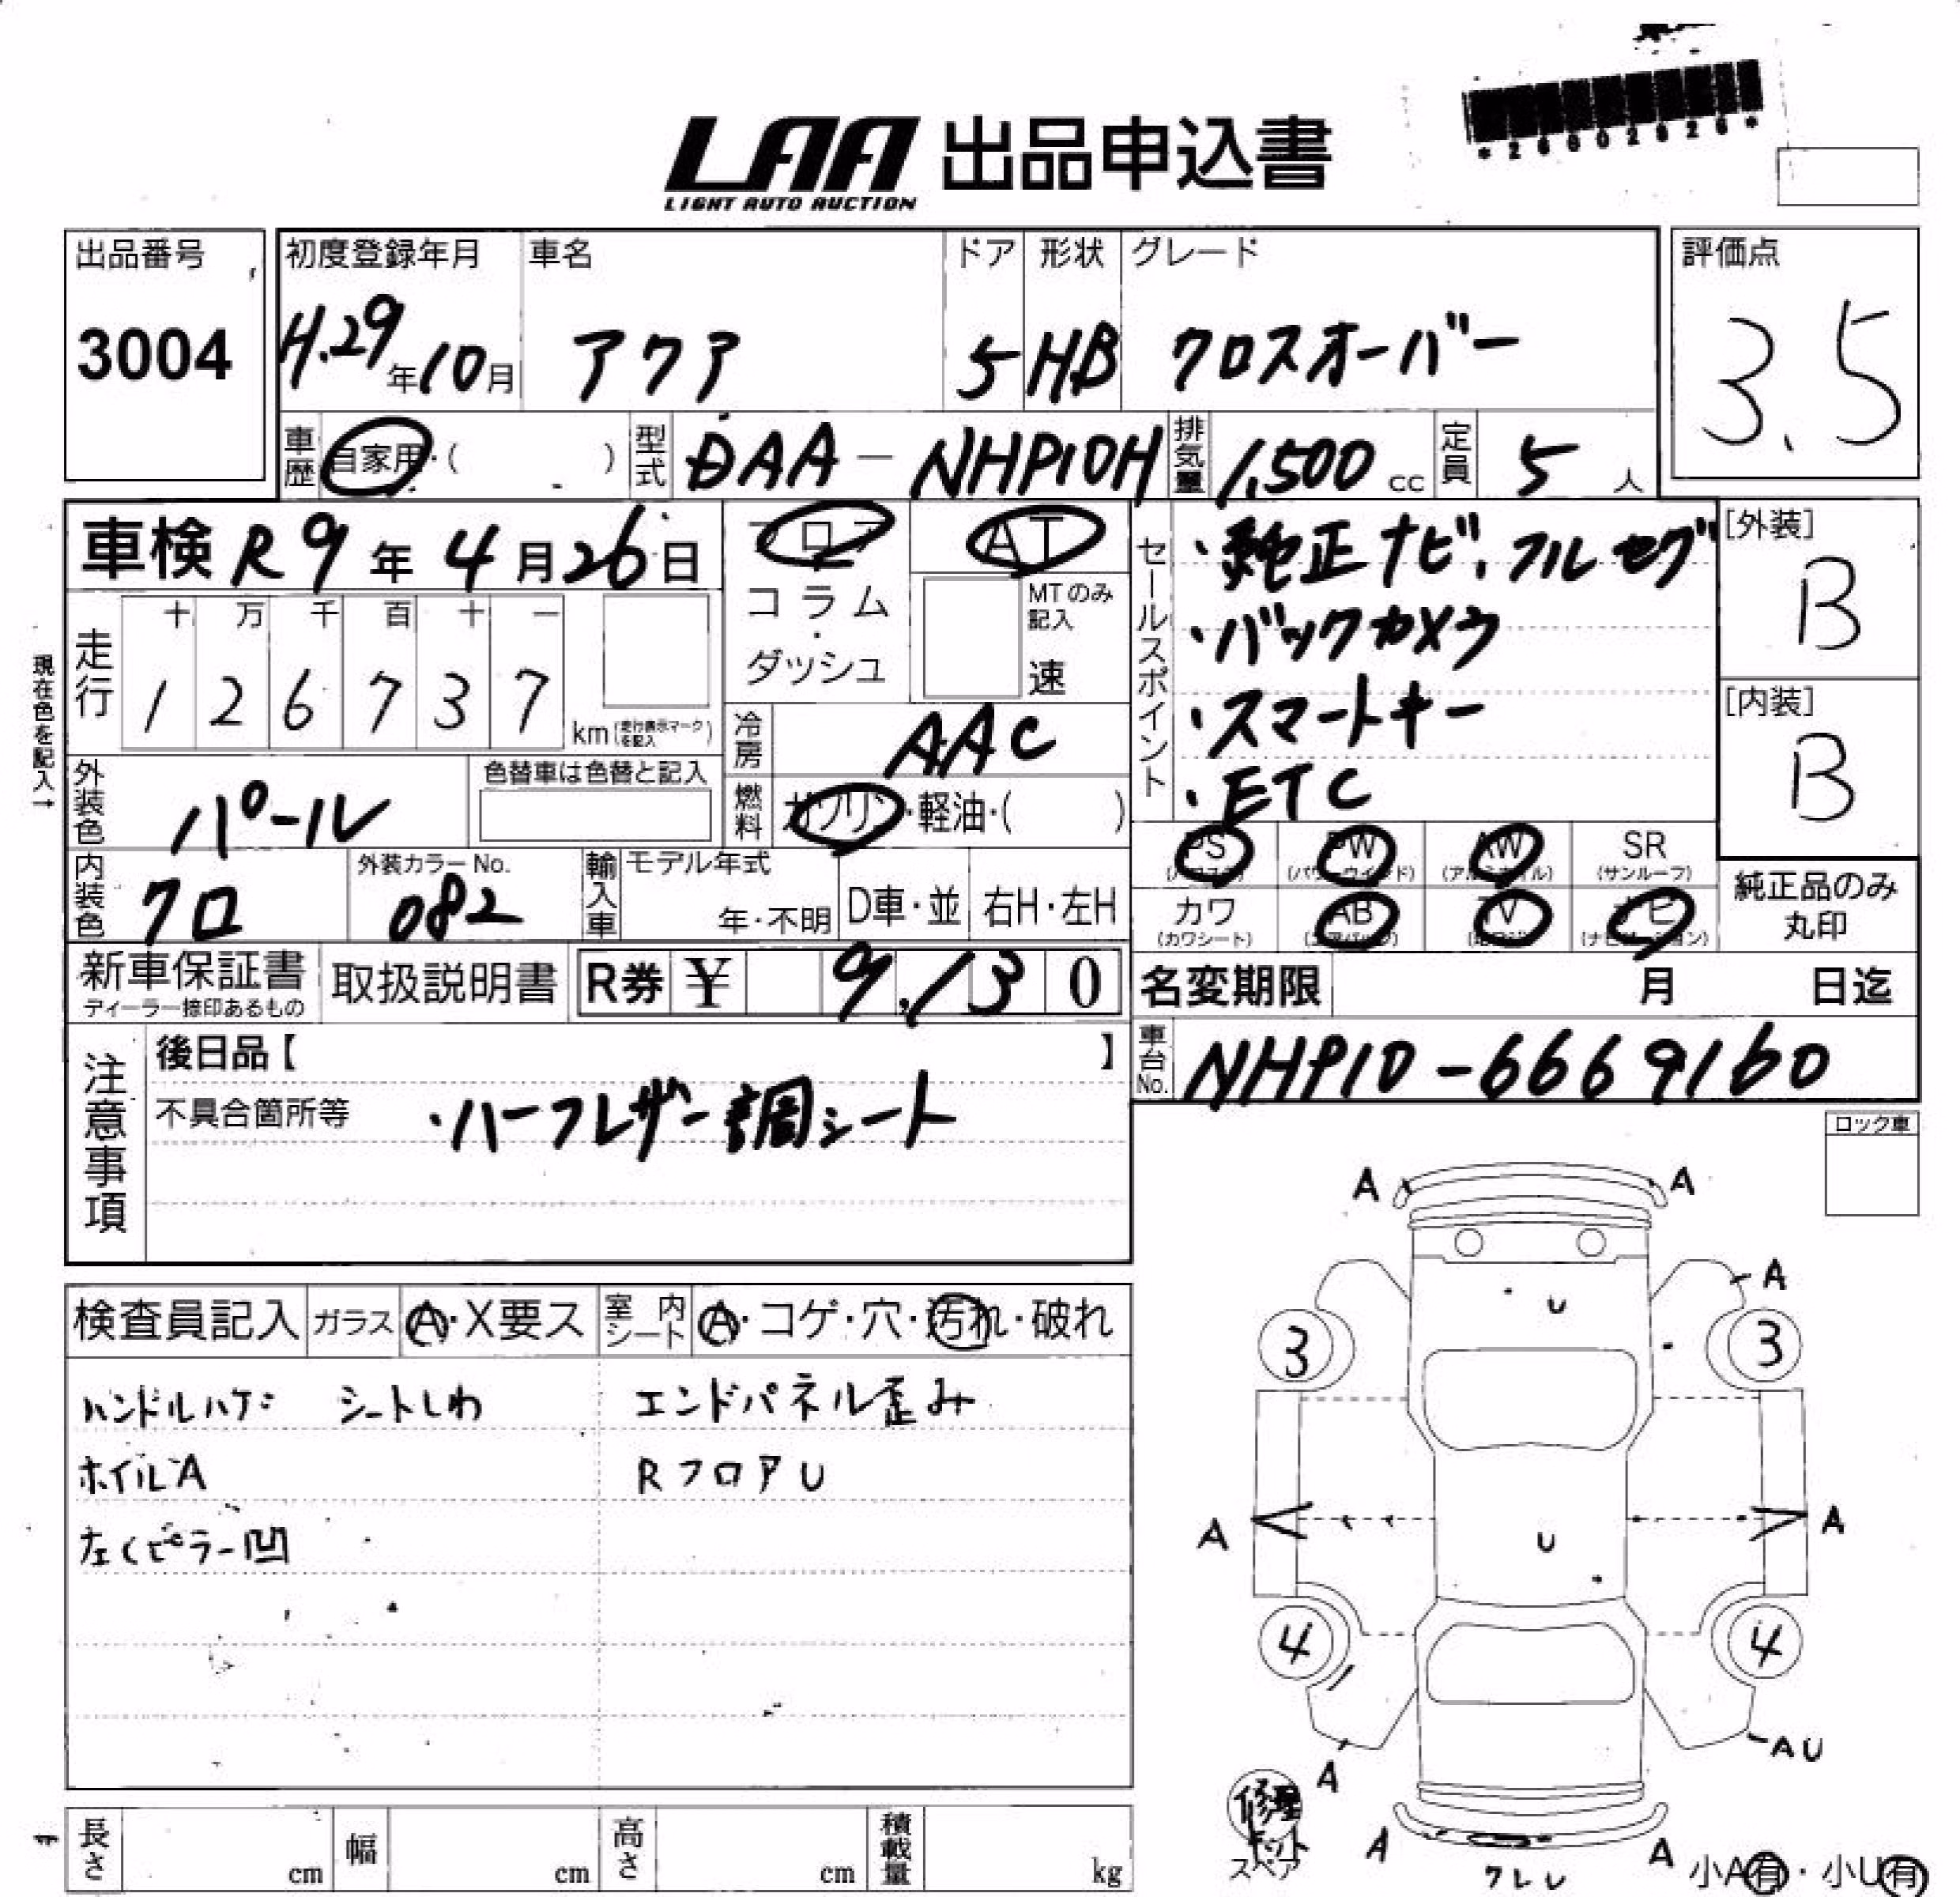 *26002026*
LAA 出品申込書
LIGHT AUTO AUCTION
出品番号
3004
初度登録年月
H.29年10月
車名
アクア
ドア
5
形状
HB
グレード
クロスオーバー
評価点
3.5
車歴 自家用・( )
型式 DAA-NHP10H
排気量 1,500 cc
定員 5 人
車検 R9年4月26日
フロア
コラム
・
ダッシュ
AT
MTのみ
記入
速
セールスポイント
・純正ナビ、フルセグ
・バックカメラ
・スマートキー
・ETC
[外装]
B
[内装]
B
現在色を記入→
走行
十 万 千 百 十 一
1 2 6 7 3 7
km(走行表示マークを記入)
冷房 AAC
燃料 ガソリン・軽油・( )
外装色 パール
色替車は色替と記入
内装色 クロ
外装カラーNo.
082
輸入車
モデル年式
年・不明
D車・並
右H・左H
PS
(パワステ)
PW
(パワーウインド)
AW
(アルミホイル)
SR
(サンルーフ)
カワ
(カワシート)
AB
(エアバッグ)
TV
ナビ
(ナビゲーション)
純正品のみ
丸印
新車保証書
ディーラー捺印あるもの
取扱説明書
R券 ¥ 9,130
名変期限 月 日迄
車台No. NHP10-6669160
注意事項
後日品【 】
不具合箇所等 ・ハーフレザー調シート
ロック車
検査員記入
ガラス Ⓐ・X要ス
室内シート Ⓐ・コゲ・穴・汚れ・破れ
ハンドルハゲ シートしわ エンドパネル歪み
ホイルA RフロアU
左Cピラー凹
A A
A
U
3 3
A U A
4 4
AU
A
修理キット
スペア
A A
ワレU
小A有・小U有
長さ cm
幅 cm
高さ cm
積載量 kg